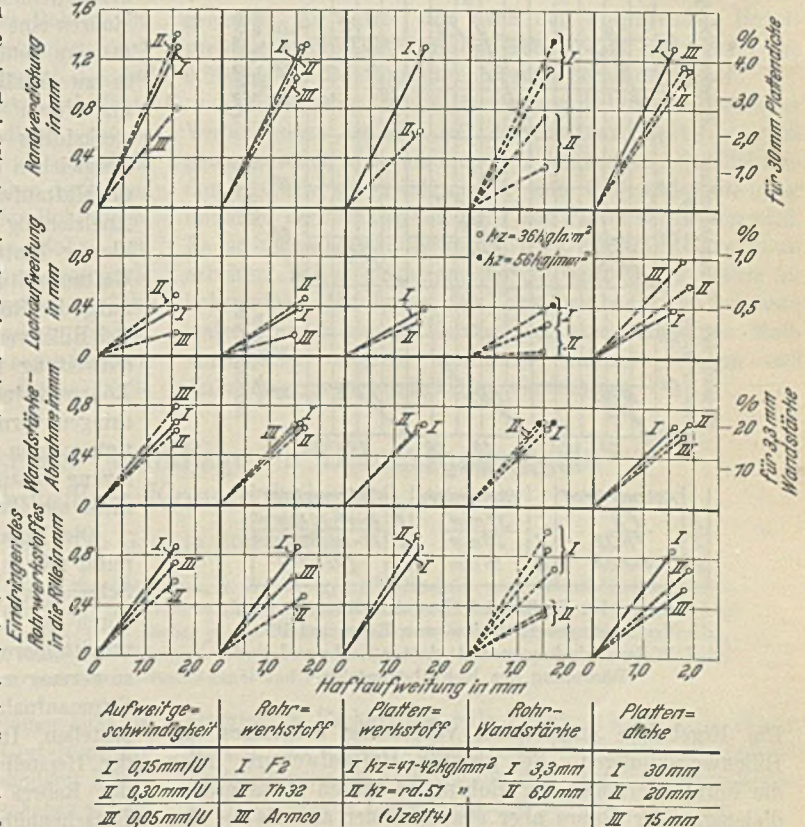 1,6
Randverdickung
in mm
1,2
0,8
0,4
0
II
I
III
I
II
III
I
II
I
II
I
III
II
%
4,0
3,0
2,0
1,0
für 30 mm Plattendicke
Lochaufweitung
in mm
0,8
0,4
0
II
I
III
II
I
III
I
II
kz=36kg/mm²
kz=56kg/mm²
I
II
III
II
I
%
1,0
0,5
Wandstärke-
Abnahme in mm
0,8
0,4
0
III
I
II
III
I
II
II
I
II
I
I
II
III
%
20
10
für 3,3 mm
Wandstärke
Eindringen des
Rohrwerkstoffes
in die Rille in mm
0,8
0,4
0
I
III
II
I
III
II
II
I
I
II
I
II
III
0 1,0 2,0 0 1,0 2,0 0 1,0 2,0 0 1,0 2,0 0 1,0 2,0
Haftaufweitung in mm
Aufweitge= Rohr= Platten= Rohr- Platten=
schwindigkeit werkstoff werkstoff Wandstärke dicke
I 0,15mm/U I F2 I kz=41-42kg/mm² I 3,3mm I 30mm
II 0,30mm/U II Th32 II kz=rd.51 " II 6,0mm II 20mm
III 0,05mm/U III Armco (Jzett4) III 15mm